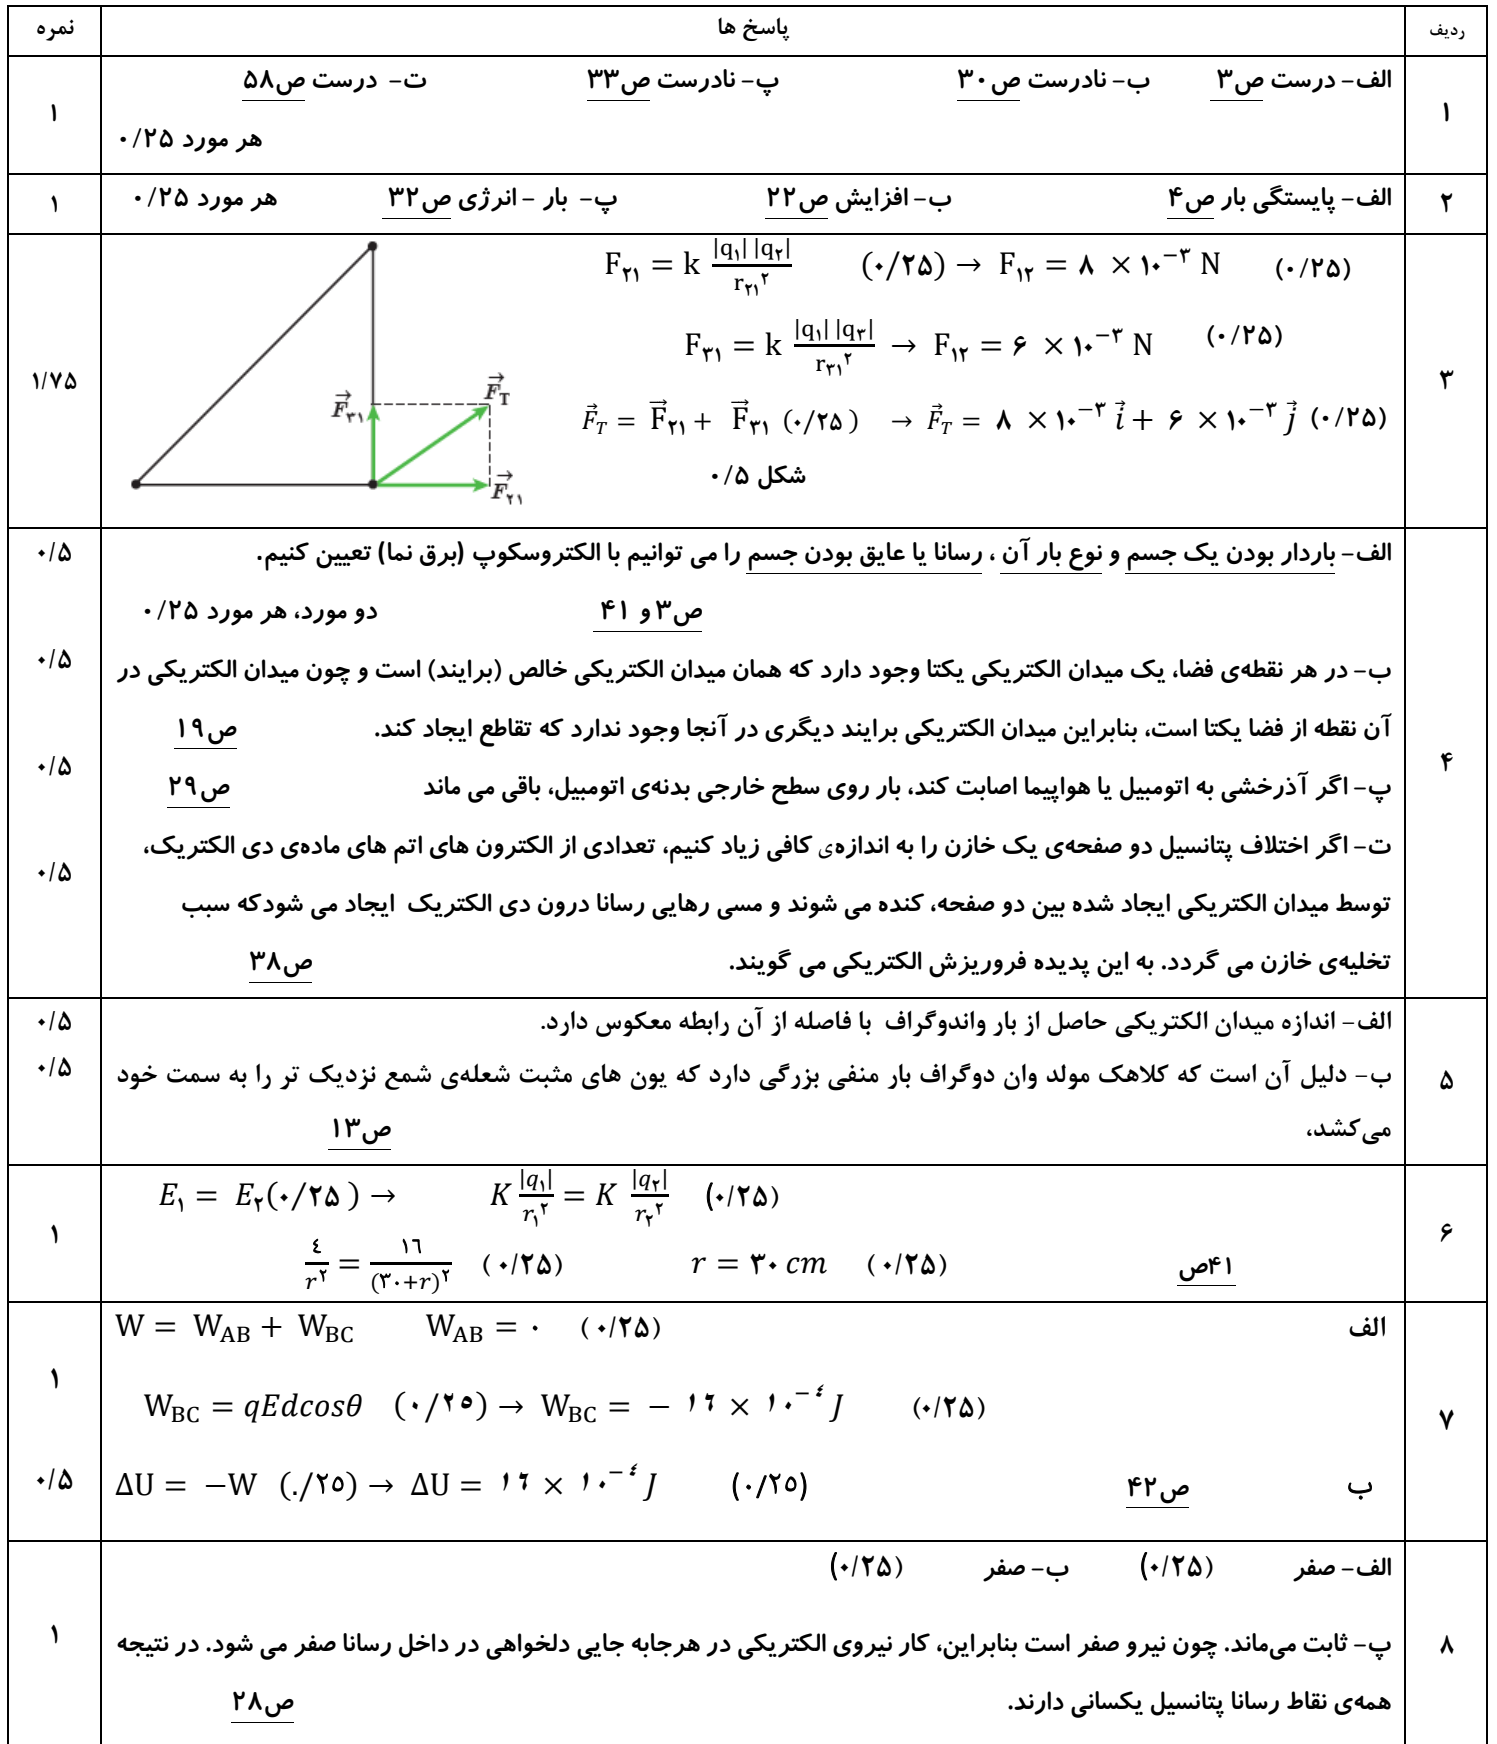 ردیف پاسخ ها نمره
۱ الف- درست ص۳ ب- نادرست ص۳۰ پ- نادرست ص۳۳ ت- درست ص۵۸ ۱
هر مورد ۰/۲۵
۲ الف- پایستگی بار ص۴ ب- افزایش ص۲۲ پ- بار - انرژی ص۳۲ هر مورد ۰/۲۵ ۱
۳ ۱/۷۵
F₂₁ = k |q₁| |q₂| / r₂₁² (۰/۲۵) → F₁₂ = ۸ × ۱۰⁻³ N (۰/۲۵)
F₃₁ = k |q₁| |q₃| / r₃₁² → F₁₂ = ۶ × ۱۰⁻³ N (۰/۲۵)
F⃗_T = F⃗₂₁ + F⃗₃₁ (۰/۲۵) → F⃗_T = ۸ × ۱۰⁻³ i⃗ + ۶ × ۱۰⁻³ j⃗ (۰/۲۵)
شکل ۰/۵
F⃗₃₁ F⃗_T
F⃗₂₁
۴ الف- باردار بودن یک جسم و نوع بار آن ، رسانا یا عایق بودن جسم را می توانیم با الکتروسکوپ (برق نما) تعیین کنیم. ۰/۵
ص۳ و ۴۱ دو مورد، هر مورد ۰/۲۵
ب- در هر نقطه‌ی فضا، یک میدان الکتریکی یکتا وجود دارد که همان میدان الکتریکی خالص (برایند) است و چون میدان الکتریکی در ۰/۵
آن نقطه از فضا یکتا است، بنابراین میدان الکتریکی برایند دیگری در آنجا وجود ندارد که تقاطع ایجاد کند. ص۱۹
پ- اگر آذرخشی به اتومبیل یا هواپیما اصابت کند، بار روی سطح خارجی بدنه‌ی اتومبیل، باقی می ماند ص۲۹ ۰/۵
ت- اگر اختلاف پتانسیل دو صفحه‌ی یک خازن را به اندازه‌ی کافی زیاد کنیم، تعدادی از الکترون های اتم های ماده‌ی دی الکتریک، ۰/۵
توسط میدان الکتریکی ایجاد شده بین دو صفحه، کنده می شوند و مسی رهایی رسانا درون دی الکتریک ایجاد می شودکه سبب
تخلیه‌ی خازن می گردد. به این پدیده فروریزش الکتریکی می گویند. ص۳۸
۵ الف- اندازه میدان الکتریکی حاصل از بار واندوگراف با فاصله از آن رابطه معکوس دارد. ۰/۵
ب- دلیل آن است که کلاهک مولد وان دوگراف بار منفی بزرگی دارد که یون های مثبت شعله‌ی شمع نزدیک تر را به سمت خود ۰/۵
می‌کشد، ص۱۳
۶ ۱
E₁ = E₂(۰/۲۵) → K |q₁| / r₁² = K |q₂| / r₂² (۰/۲۵)
٤ / r² = ١٦ / (۳۰+r)² (۰/۲۵) r = ۳۰ cm (۰/۲۵) ۴۱ص
۷ الف W = W_AB + W_BC W_AB = ۰ (۰/۲۵) ۱
W_BC = qEdcosθ (٠/٢٥) → W_BC = − ١٦ × ١٠⁻⁴ J (۰/۲۵)
ب ص۴۲ ΔU = −W (./٢٥) → ΔU = ١٦ × ١٠⁻⁴ J (٠/٢٥) ۰/۵
۸ الف- صفر (۰/۲۵) ب- صفر (۰/۲۵) ۱
پ- ثابت می‌ماند. چون نیرو صفر است بنابراین، کار نیروی الکتریکی در هرجابه جایی دلخواهی در داخل رسانا صفر می شود. در نتیجه
همه‌ی نقاط رسانا پتانسیل یکسانی دارند. ص۲۸